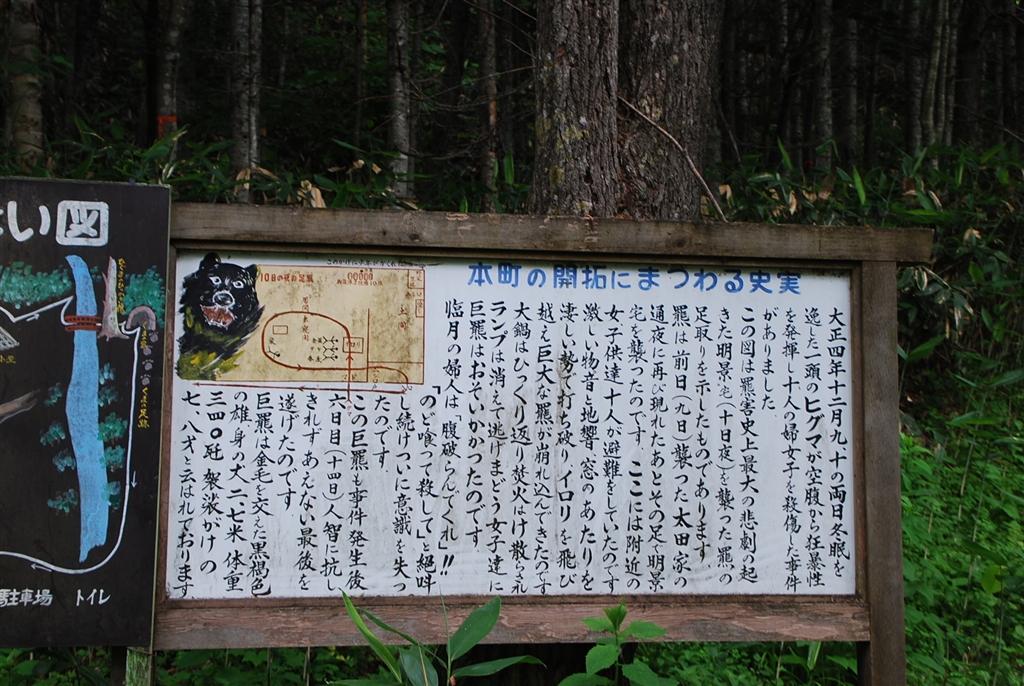 本町の開拓にまつわる史実
大正四年十二月九、十の両日冬眠を
逸した一頭のヒグマが空腹から狂暴性
を発揮し十人の婦女子を殺傷した事件
がありました
この図は羆害史上最大の悲劇の起
きた明景宅(十日夜)を襲った羆の
足取りを示したものであります。
羆は前日(九日)襲った太田家の
通夜に再び現れたあとその足で明景
宅を襲ったのです。ここには附近の
女、子供達十人が避難をしていたのです
激しい物音と地響、窓のあたりを
凄しい勢で打ち破りイロリを飛び
越え巨大な羆が崩れ込んできたのです
大鍋はひっくり返り焚火はけ散らされ
ランプは消えて逃げまどう女子達に
巨羆はおそいかかったのです。
臨月の婦人は「腹破らんでくれ」!!
「のど喰って殺して」と絶叫
し続けついに意識を失っ
たのです。
この巨羆も事件発生後
六日目(十四日)人智に抗し
きれずあえない最後を
遂げたのです
巨羆は金毛を交えた黒褐色
の雄身の丈二、七米体重
三四〇瓩袈裟がけの
七、八才と云はれております
い図
駐車場
トイレ
くまの足跡